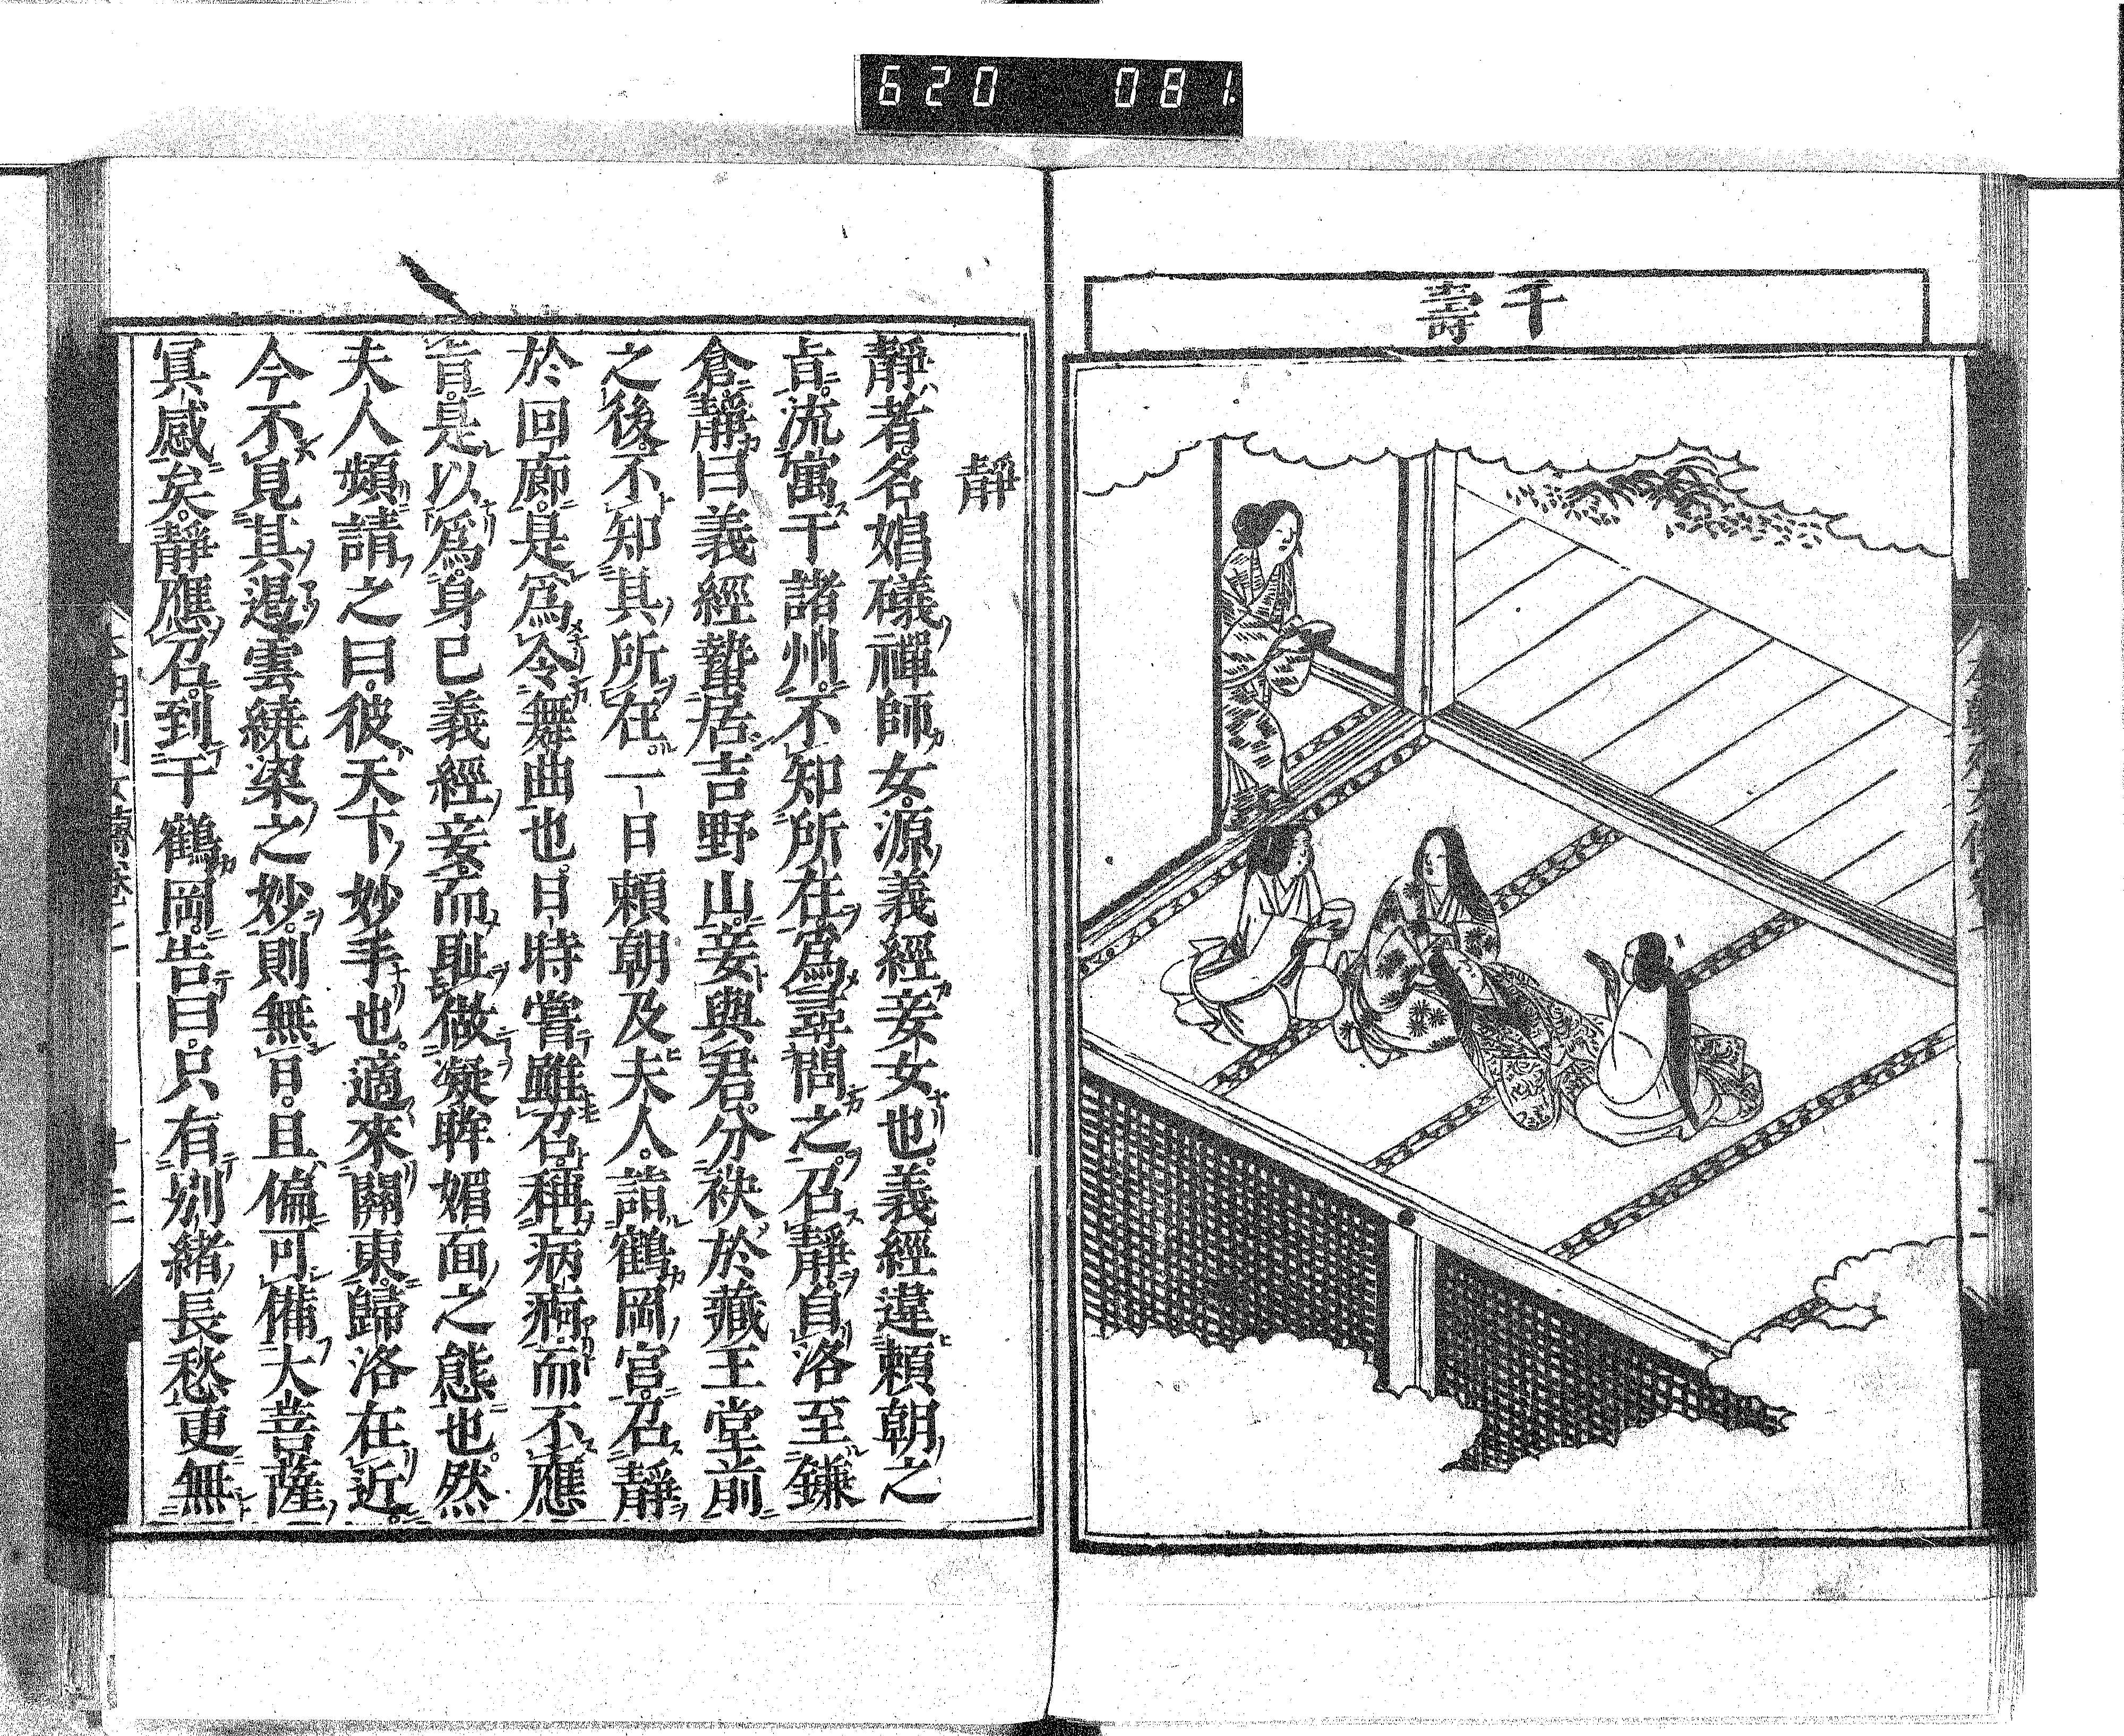 620 081
千壽
靜
靜者名娼礒禪師女源義經妾女也義經違賴朝之
旨流寓于諸州不知所在爲尋問之召靜自洛至鎌
倉靜曰義經蟄居吉野山妾與君分袂於藏王堂前
之後不知其所在一日賴朝及夫人詣鶴岡宮召靜
於回廊是爲令舞曲也日時嘗雖召稱病痾而不應
旨是以爲身已義經妾而耻做凝眸媚面之態也然
夫人頻請之曰彼天下妙手也適來關東歸洛在近
今不見其遏雲繞梁之妙則無日且偏可備大菩薩
冥感矣靜應召到于鶴岡告曰只有別緒長愁更無